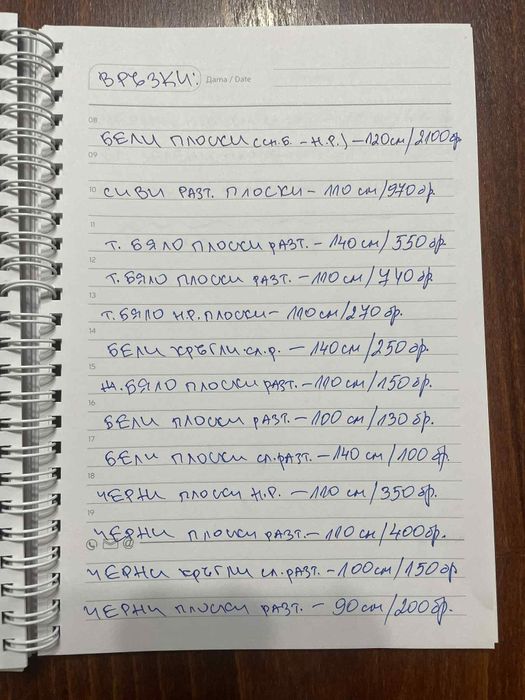 ВРЪЗКИ:
Дата / Date
08
БЕЛИ ПЛОСКИ (сн.б. - Н.Р.) - 120 см/2100 бр
09
10 СИВИ РАЗТ. ПЛОСКИ - 110 см/970 бр.
11
Т. БЯЛО ПЛОСКИ РАЗТ. - 140 см/550 бр.
12
Т. БЯЛО ПЛОСКИ РАЗТ. - 110 см/740 бр.
13
Т. БЯЛО Н.Р. ПЛОСКИ - 110 см/270 бр.
14
БЕЛИ КРЪГЛИ сл.р. - 140 см/250 бр.
15
М. БЯЛО ПЛОСКИ РАЗТ. - 110 см/150 бр.
16
БЕЛИ ПЛОСКИ РАЗТ. - 100 см/130 бр.
17
БЕЛИ ПЛОСКИ сл. РАЗТ. - 140 см/100 бр.
18
ЧЕРНИ ПЛОСКИ Н.Р. - 110 см/350 бр.
19
ЧЕРНИ ПЛОСКИ РАЗТ. - 110 см/400 бр.
ЧЕРНИ КРЪГЛИ сл. РАЗТ. - 100 см/150 бр
ЧЕРНИ ПЛОСКИ РАЗТ. - 90 см/200 бр.